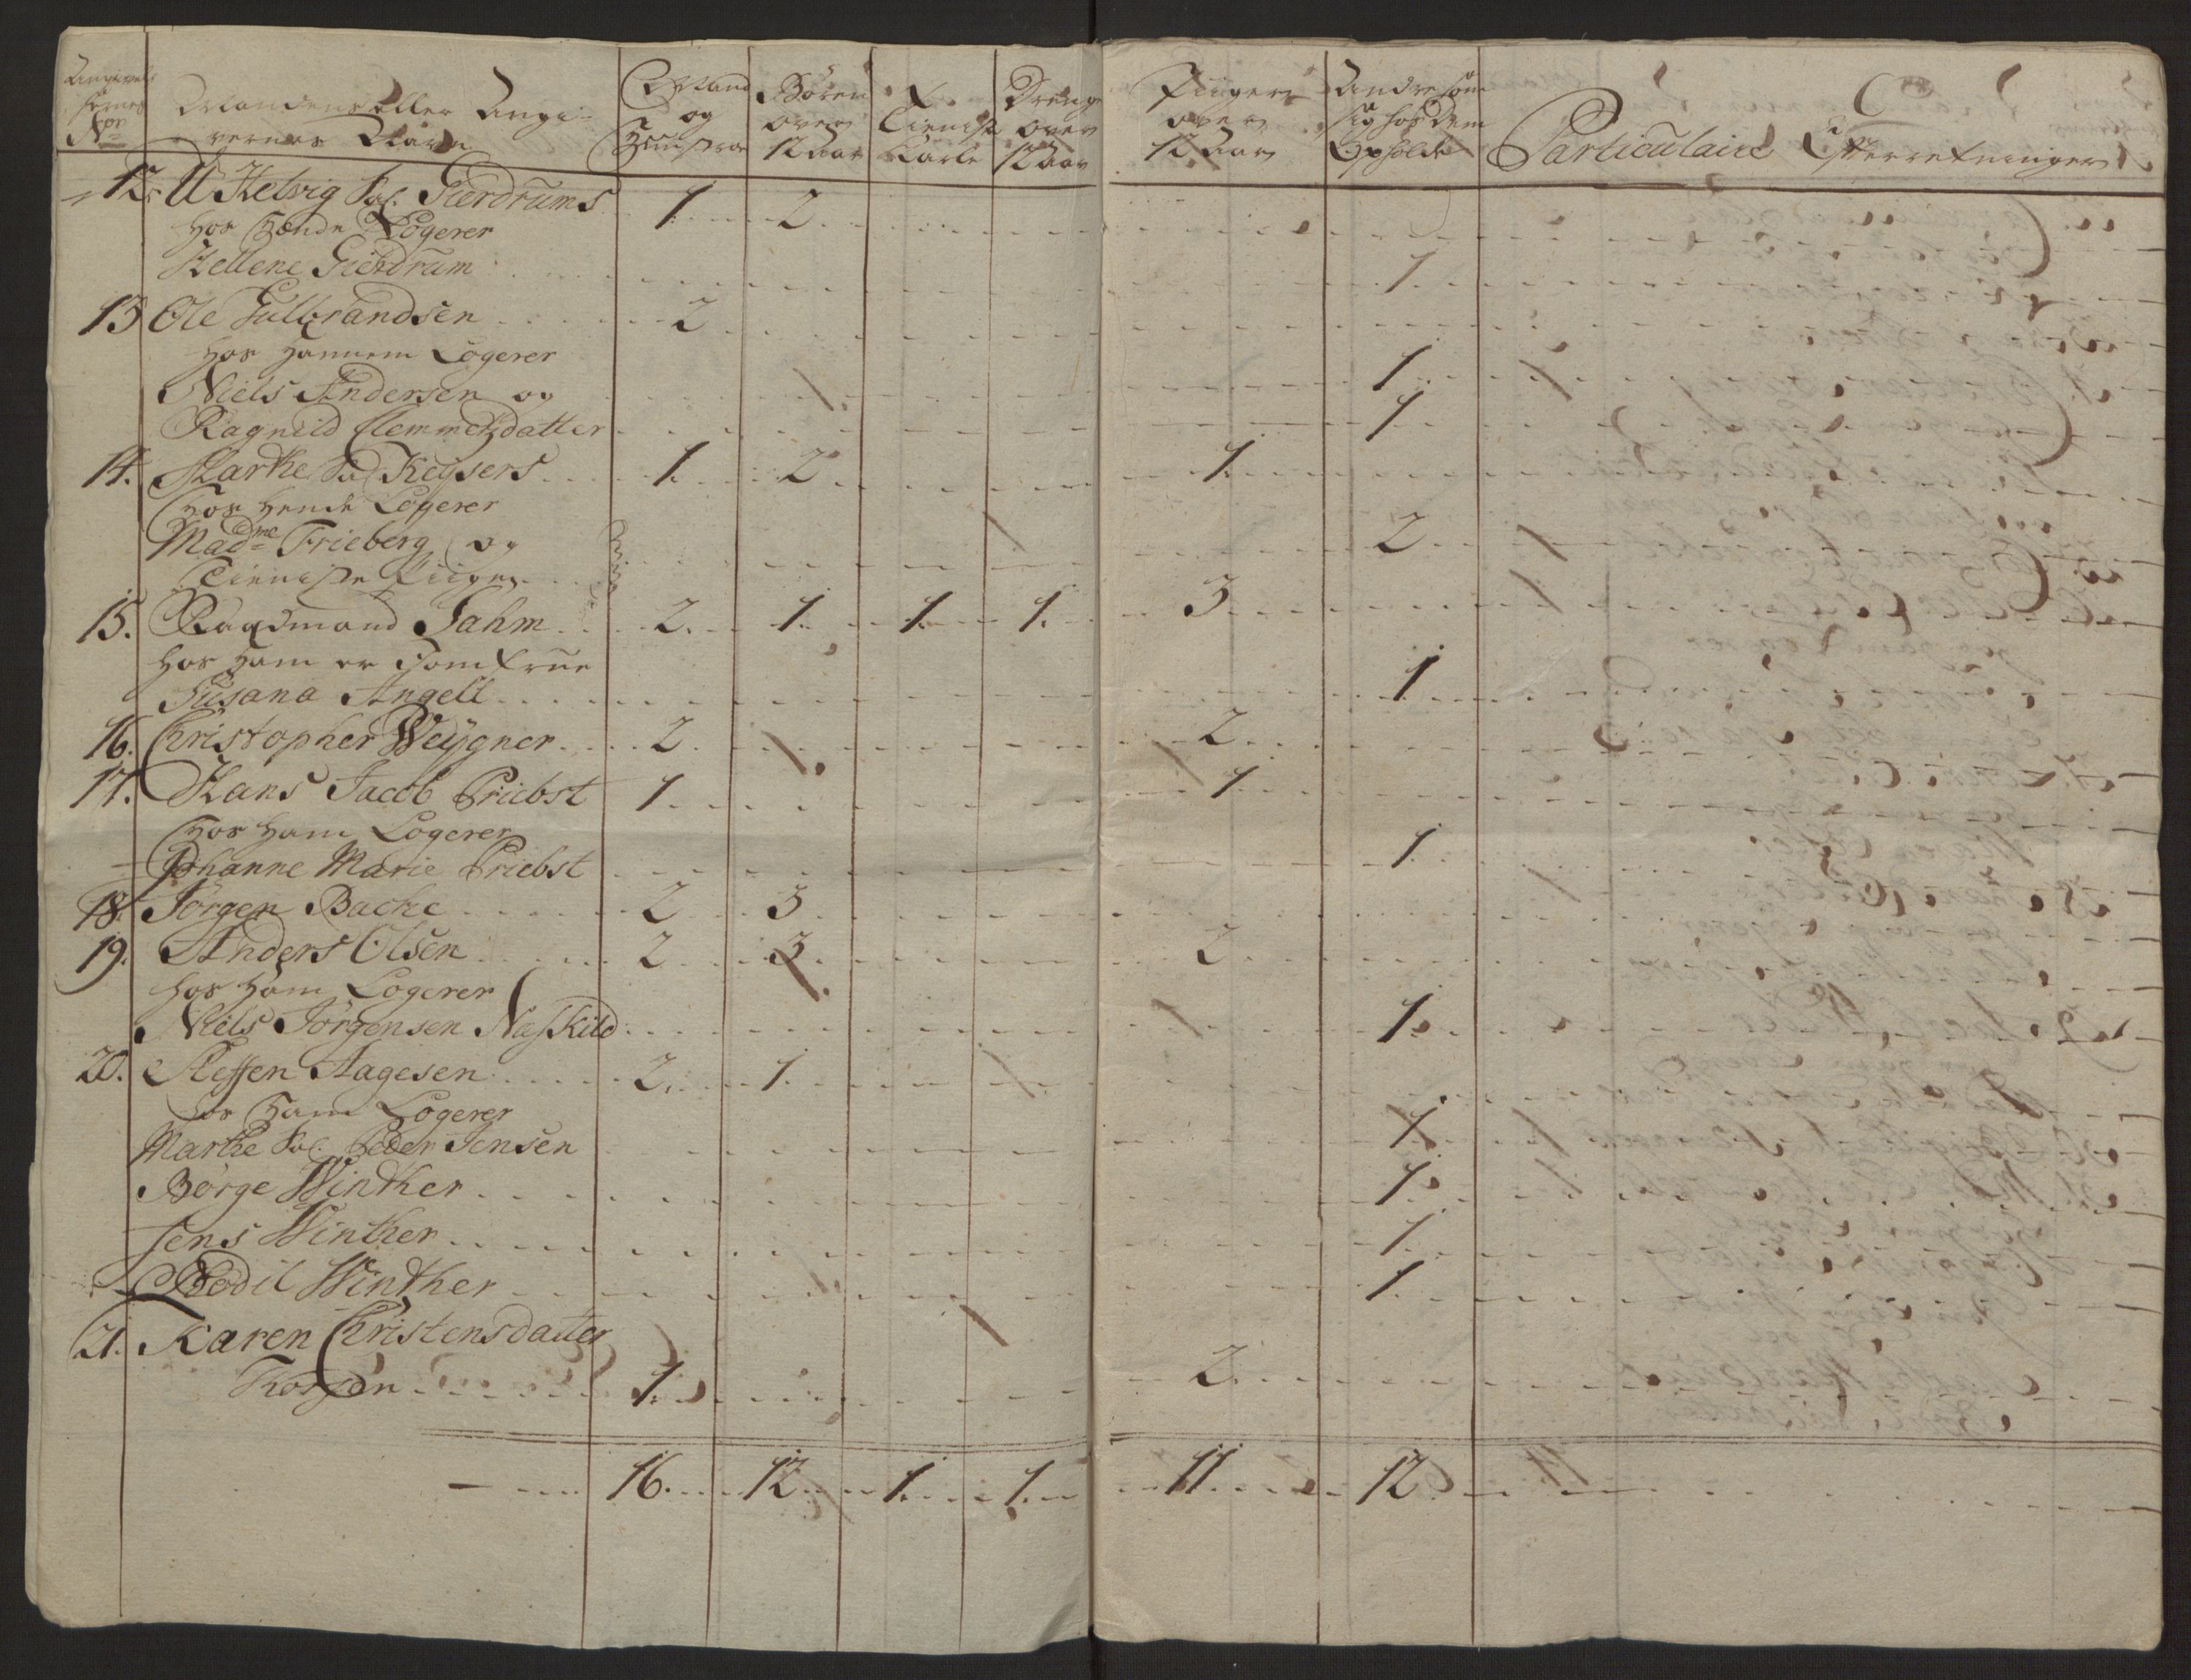 Angivel-
sernes
Nor
Mandens eller Angi-
vernes Navn
Mand
og
Hustroe
Börn
over
12 Aar
Tieniste
Karle
Drenge
over
12 Aar
Piiger
over
12 Aar
Andre som
sig hos dem
Opholde
Particulaire Efterretninger
12. A Helvig Sal. Gierdrums 1. 2.
hos hende Logerer
Hellene Gierdrum 1
13 Ole Gulbrandsen 2
hos hannem Logerer
Niels Andersen og 1
Ragnild Clemmetzdatter 1
14. Marthe Sal Keysers 1. 2. 1.
hos hende Logerer
Madme Frieberg og 2
Tieniste Piige
15. Raadmand Jahm 2. 1. 1. 1. 3.
hos ham er Jomfrue
Susana Angell 1
16. Christopher Weygner 2. 2.
17. Hans Jacob Priebst 1. 1.
hos ham Logerer
Johanne Marie Priebst 1
18. Jörgen Bache 2 3
19. Anders Olsen 2. 3. 2.
hos ham Logerer
Niels Jörgensen Naskild 1.
20. Steffen Aagesen 2. 1.
hos ham Logerer
Marthe Sal. Peder Jensen 1
Börge Winther 1.
Jens Winther 1
Bodil Winther 1.
21. Karen Christensdatter
Thorsön 1. 2.
16. 12. 1. 1. 11. 12.